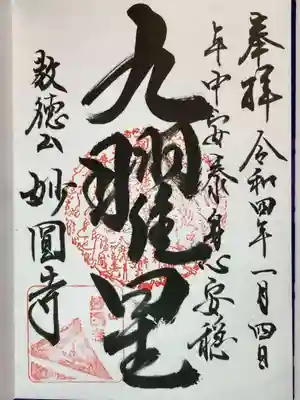 奉拝 令和四年一月四日
年中安泰身心安穏
九曜星
敎徳山 妙圓寺